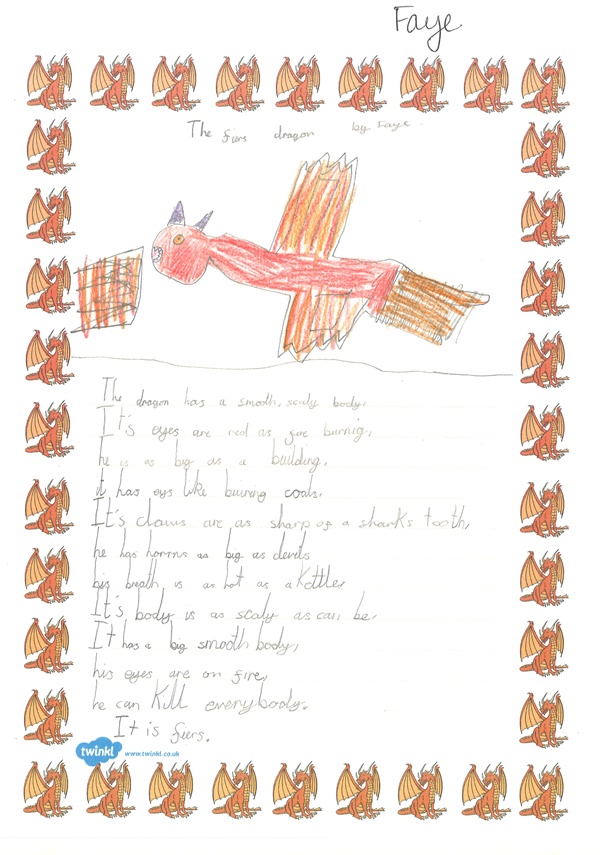 Faye
The fiers dragon by Faye.
The dragon has a smooth, scaly body,
It's eyes are red as fire burnig,
he is as big as a building,
it has eys like buining coals.
It's claws are as sharp as a sharks tooth,
he has horrns as big as devils
his breath is as hot as a Kettle,
It's body is as scaly as can be,
It has a big smooth body,
his eyes are on fire,
he can kill everybody.
It is fiers.
twinkl www.twinkl.co.uk